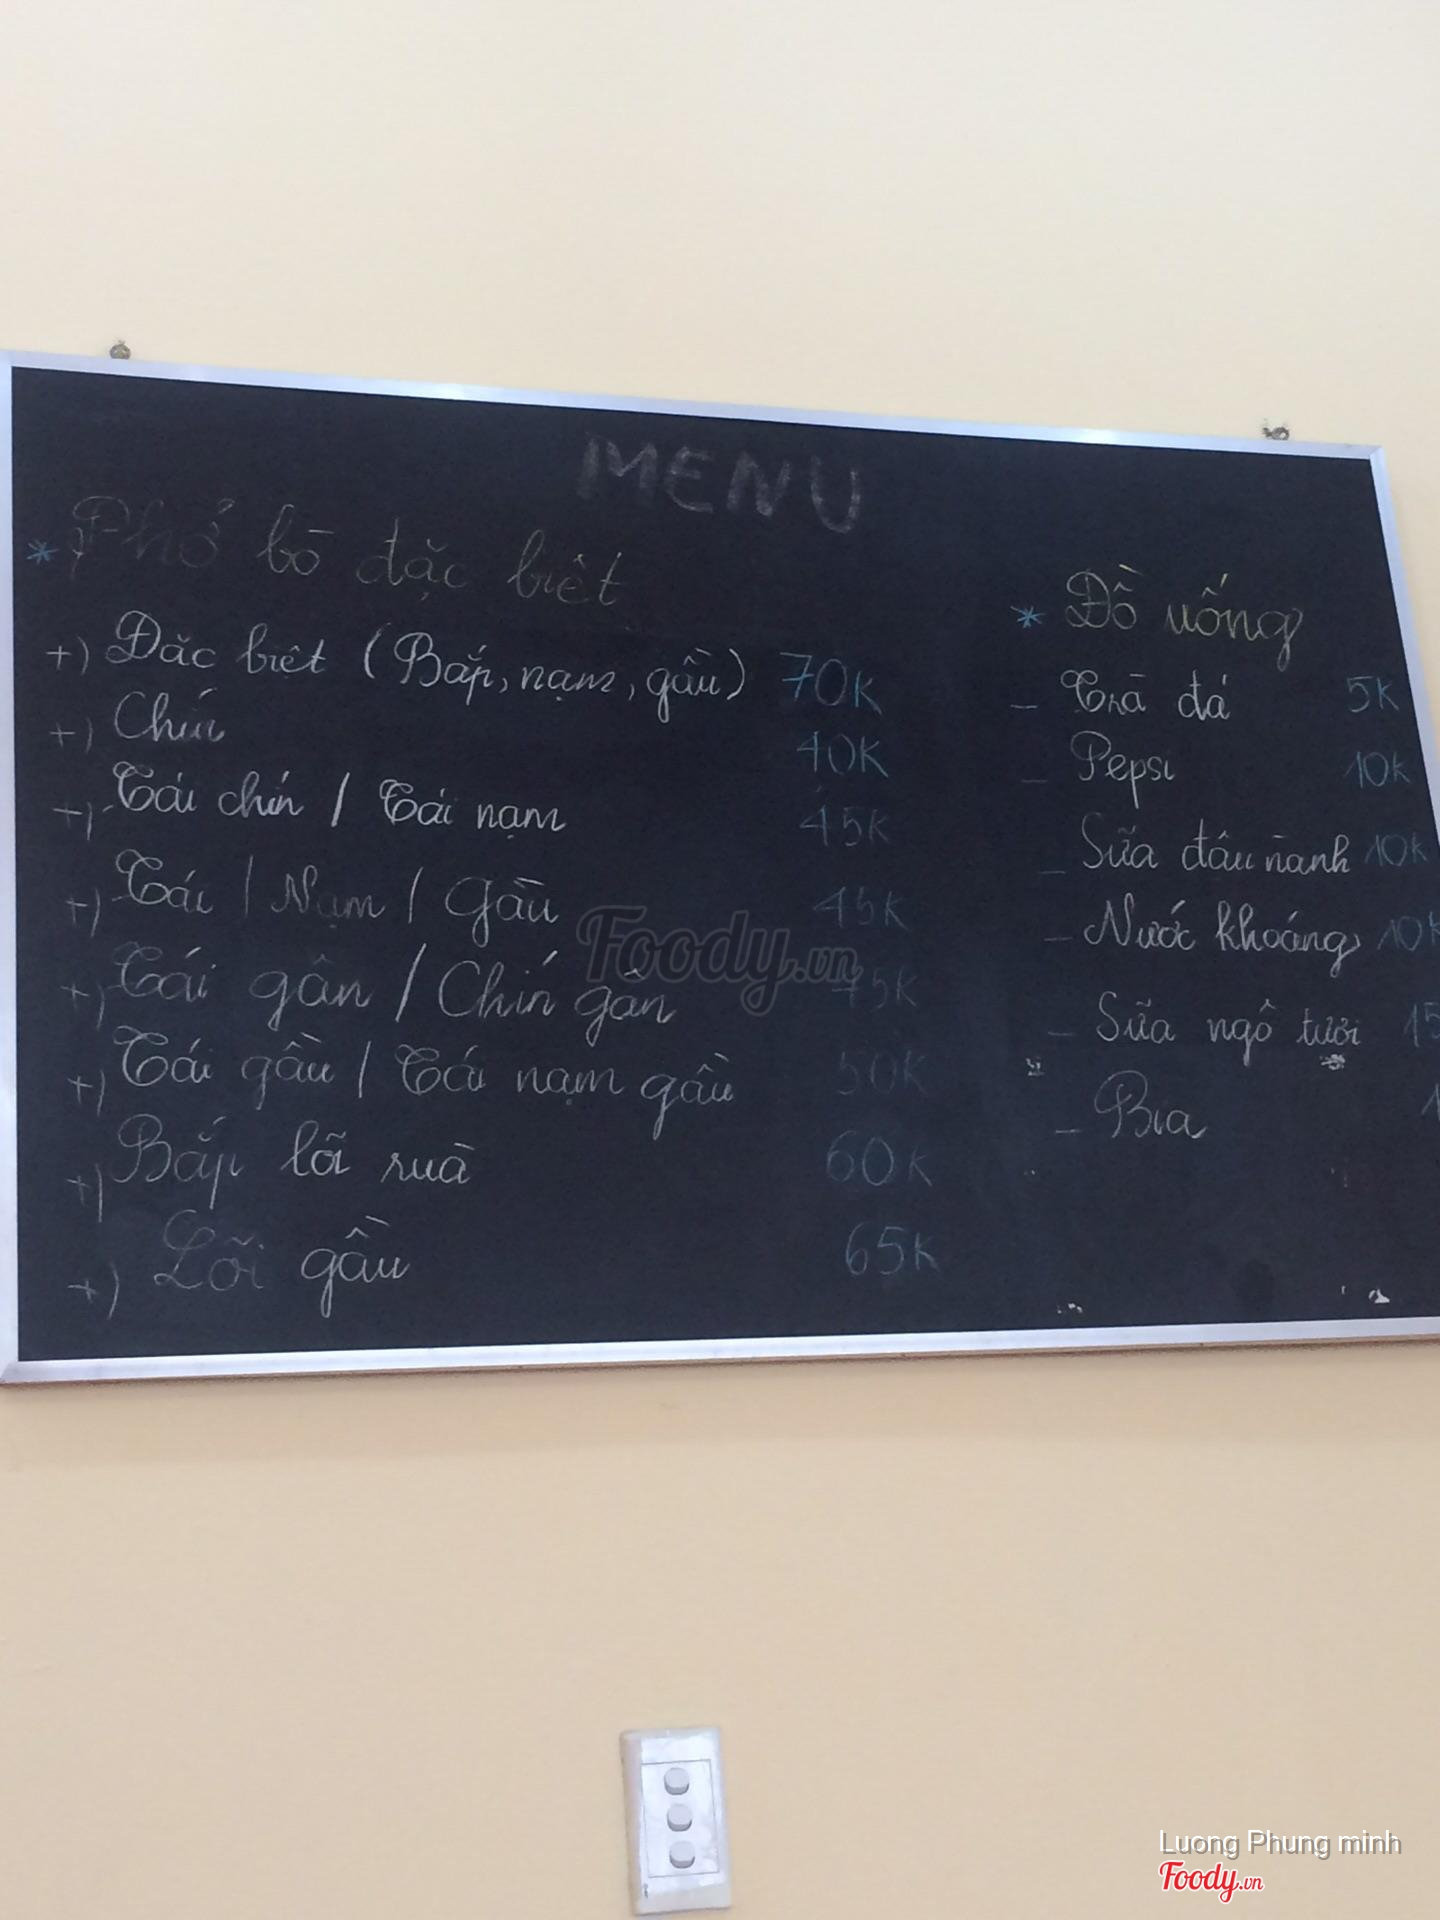 MENU
* Phở bò đặc biệt
+) Đặc biệt (Bắp, nạm, gầu) 70K
+) Chín 40K
+) Tái chín / Tái nạm 45K
+) Tái / Nạm / Gầu 45K
+) Tái gân / Chín gân 45K
+) Tái gầu / Tái nạm gầu 50K
+) Bắp lõi rùa 60K
+) Lõi gầu 65K
* Đồ uống
- Trà đá 5K
- Pepsi 10K
- Sữa đậu nành 10K
- Nước khoáng 10K
- Sữa ngô tươi 15
- Bia 1
Foody.vn
Luong Phung minh
Foody.vn